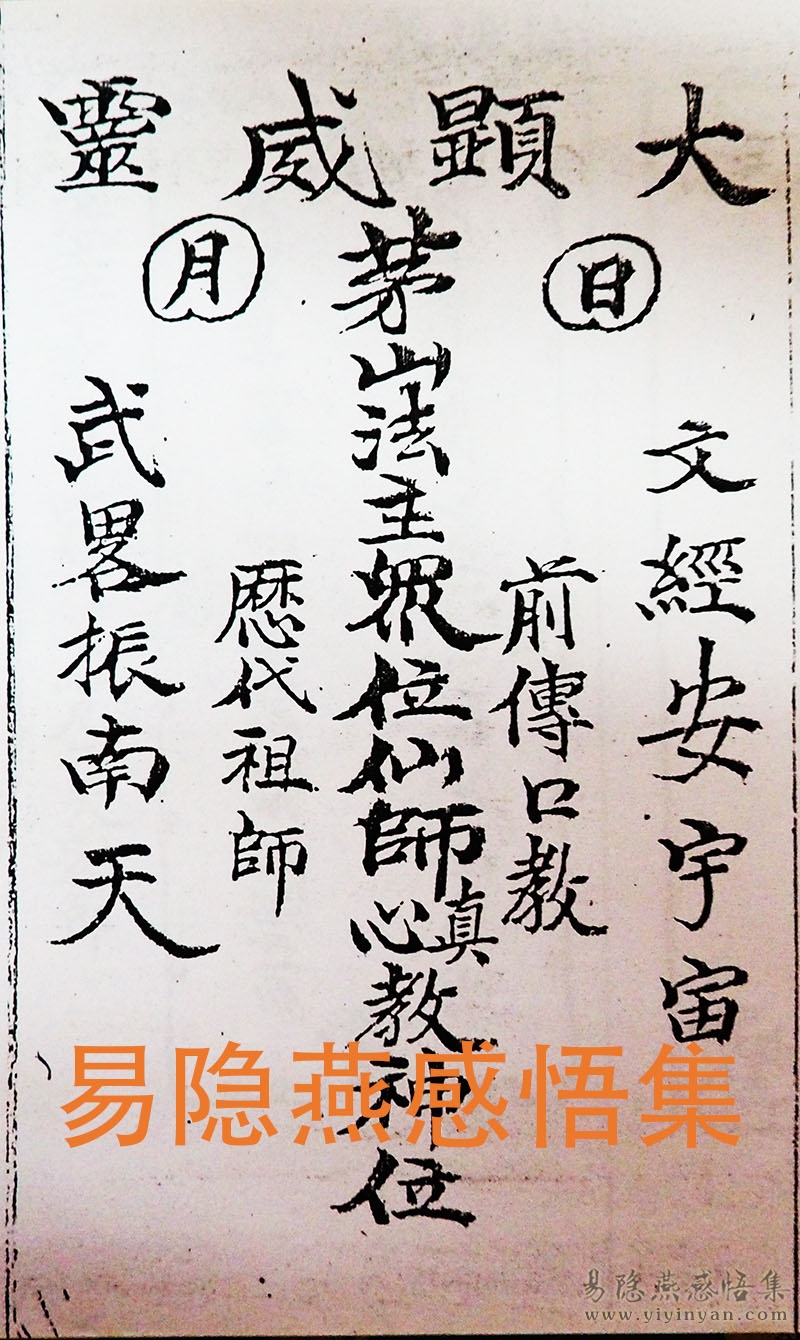 大顯威靈
日
月
文經安宇宙
前傳口教
茅山法主眾位仙師真心教神位
歷代祖師
武畧振南天
易隐燕感悟集
易隐燕感悟集
www.yiyinyan.com